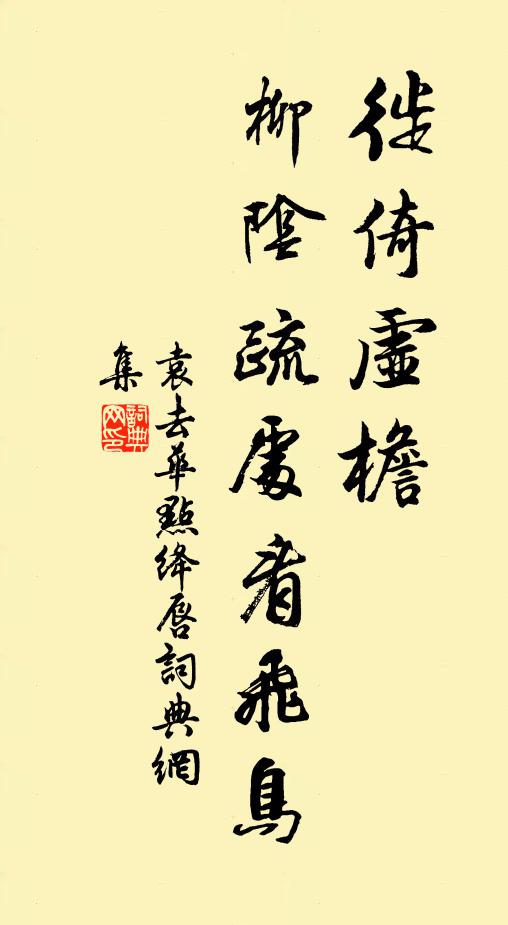 徙倚虛檐
柳陰疏處看飛鳥
袁去華點絳唇詞典網
集
詞典
网印